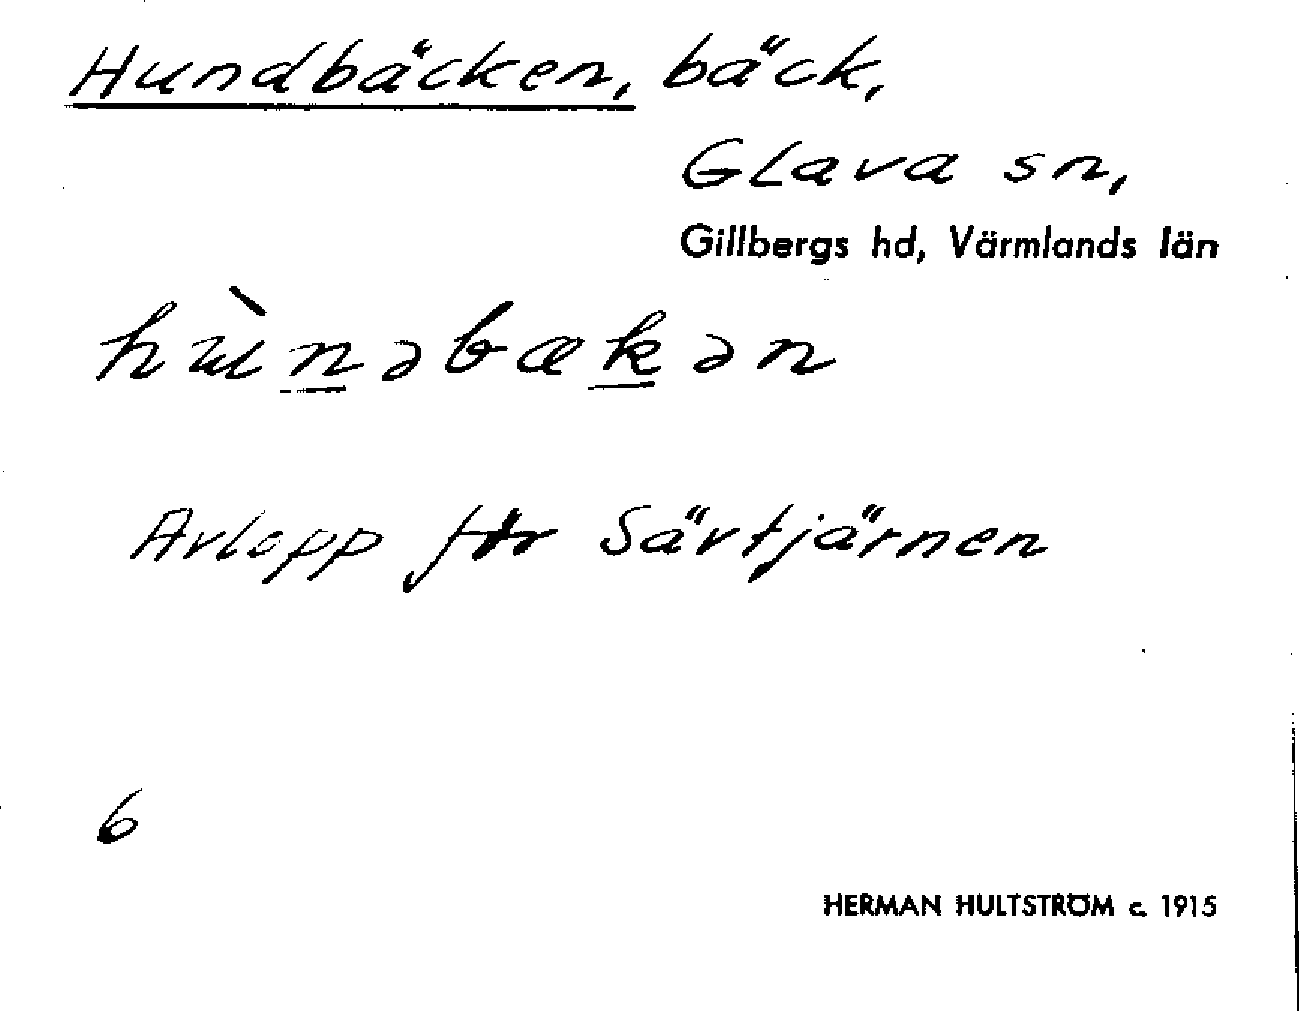 Hundbäcken, bäck,
Glava sn,
Gillbergs hd, Värmlands län
hùnəbækən
Avlopp för Särtjärnen
6
HERMAN HULTSTRÖM c. 1915